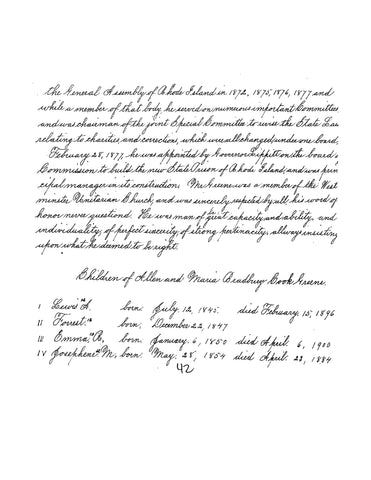 the General Assembly of Rhode Island in 1872, 1875, 1876, 1877 and
while a member of that body he served on numerous important Committees
and was chairman of the joint Special Committee to revise the State Law
relating to charities and correction, which were all changed under one board.
February 28, 1877, he was appointed by Governor Lippitt on the board's
Commission to build the new State Prison of Rhode Island, and was prin
cipal manager in its construction. Mr Greene was a member of the West
minster Unitarian Church, and was sincerely respected by all, his word of
honor never questiond. He was man of great capacity and ability, and
individuality, of perfect sincerity, of strong pertenacity, allways insisting
upon what he deemed to be right.
Children of Allen and Maria Bradbury Cook Greene.
I Lewis A. born July, 12, 1845. died February, 15, 1896
II Forrest. born, December 22, 1847
III Emma, B, born January, 6, 1850 died April. 6, 1900
IV Josephene M, born. May. 28, 1854 died April. 22, 1884
42